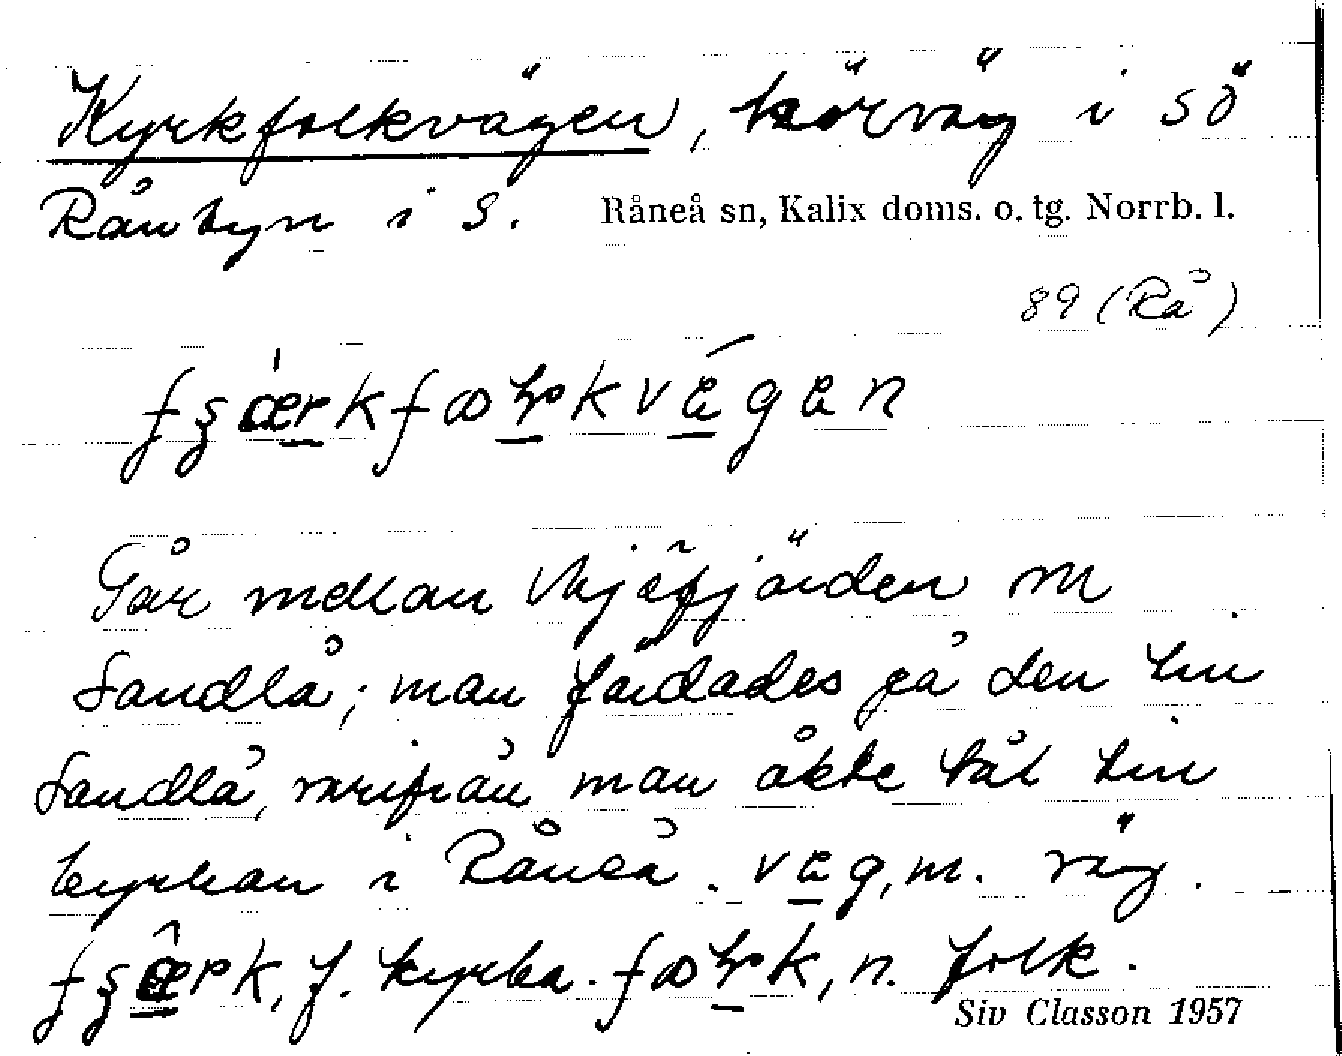 Kyrkfolkvägen, körväg i sö
Rånbyn i S. Råneå sn, Kalix doms. o. tg. Norrb. l.
89 (Rå)
Går mellan fjärden o
Sandlå; man färdades på den till
Sandlå, varifrån man åkte båt till
kyrkan i Råneå. väg, m. väg.
f. kyrka. n. folk.
Siv Classon 1957